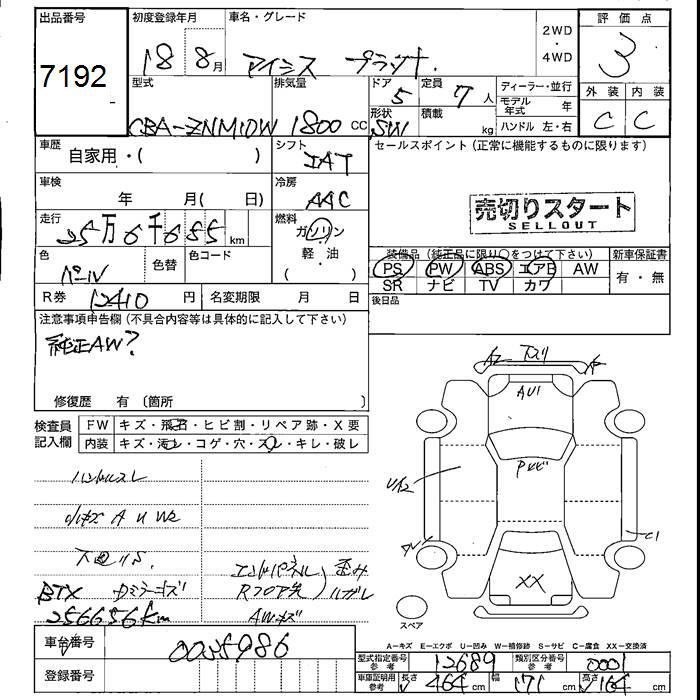 出品番号 初度登録年月 車名・グレード 2WD・4WD 評価点
7192 18年 8月 アイシス プラタナ 3
型式 排気量 ドア 5 定員 7人 ディーラー・並行 外装 内装
CBA-ZNM10W 1800cc 形状 SW 積載 kg モデル年式 年 C C
ハンドル 左・右
車歴 自家用・( ) シフト IAT セールスポイント(正常に機能するものに限ります)
車検 年 月( 日) 冷房 AAC
売切りスタート
SELLOUT
走行 25万6千655km 燃料 ガソリン・軽油・( )
装備品(純正品に限り○をつけて下さい) 新車保証書
色 パール 色替 色コード PS PW ABS エアB AW 有・無
SR ナビ TV カワ
R券 12410円 名変期限 月 日 後日品
注意事項申告欄(不具合内容等は具体的に記入して下さい)
純正AW?
修復歴 有 〔箇所 〕
検査員記入欄 FW キズ・飛石・ヒビ割・リペア跡・X要
内装 キズ・汚レ・コゲ・穴・スレ・キレ・破レ
ハンドルスレ
小キズ A U W2
下回りS.
BTX Dミラーキズ
256656km
エンドパネル 歪み
Rフロア先 ハガレ
AWキズ
A2 下スリ A
AU1
UA2
C1
XX
スペア
A-キズ E-エクボ U-凹み W-補修跡 S-サビ C-腐食 XX-交換済
車台番号 0025986
登録番号
型式指定番号 参考 12689 類別区分番号 参考 0001
車庫証明用 参考 長さ 464cm 幅 171cm 高さ 164cm